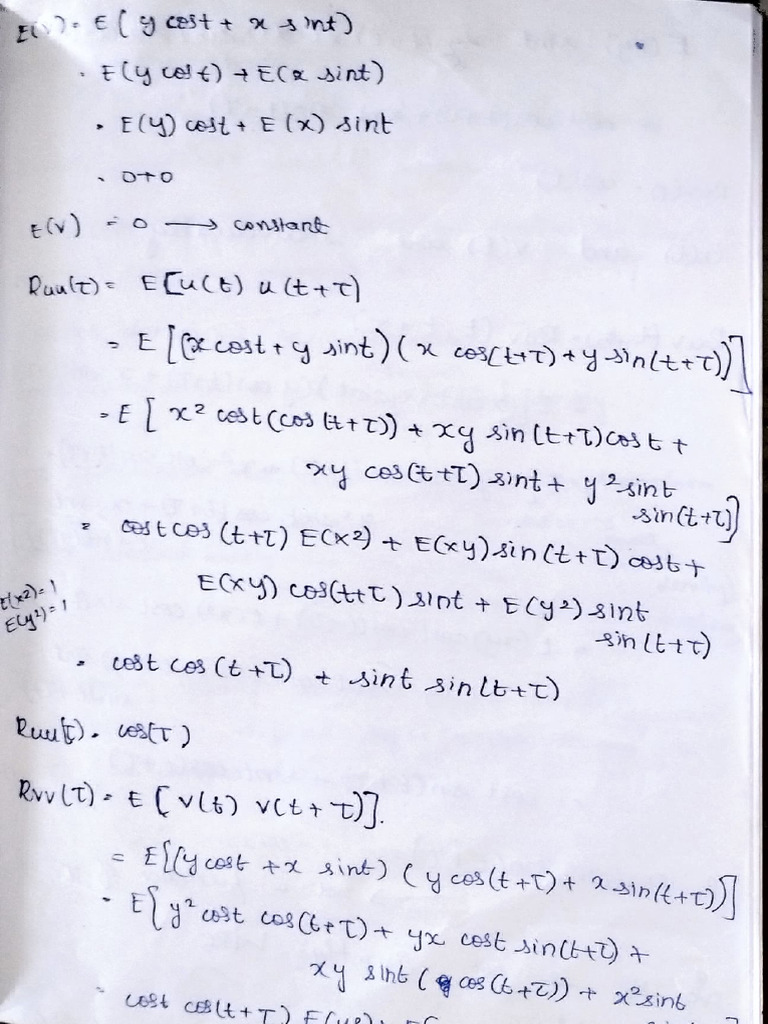 E(V) = E ( y cost + x sint)
= E(y cost) + E(x sint)
= E(y) cost + E(x) sint
= 0+0
E(V) = 0 → constant
Ruu(τ) = E[u(t) u(t+τ]
= E [(x cost + y sint) (x cos(t+τ) + y sin(t+τ))]
= E [ x² cost(cos(t+τ)) + xy sin(t+τ) cost +
xy cos(t+τ) sint + y² sint
sin(t+τ)]
= cost cos (t+τ) E(x²) + E(xy) sin(t+τ) cost +
E(xy) cos(t+τ) sint + E(y²) sint
sin(t+τ)
E(x²)=1
E(y²)=1
= cost cos(t+τ) + sint sin(t+τ)
Ruu(τ) = cos(τ)
Rvv(τ) = E [ v(t) v(t+τ)].
= E[(y cost + x sint) (y cos(t+τ) + x sin(t+τ))]
= E[y² cost cos(t+τ) + yx cost sin(t+τ) +
xy sint (cos(t+τ)) + x² sint
= cost cos(t+τ)